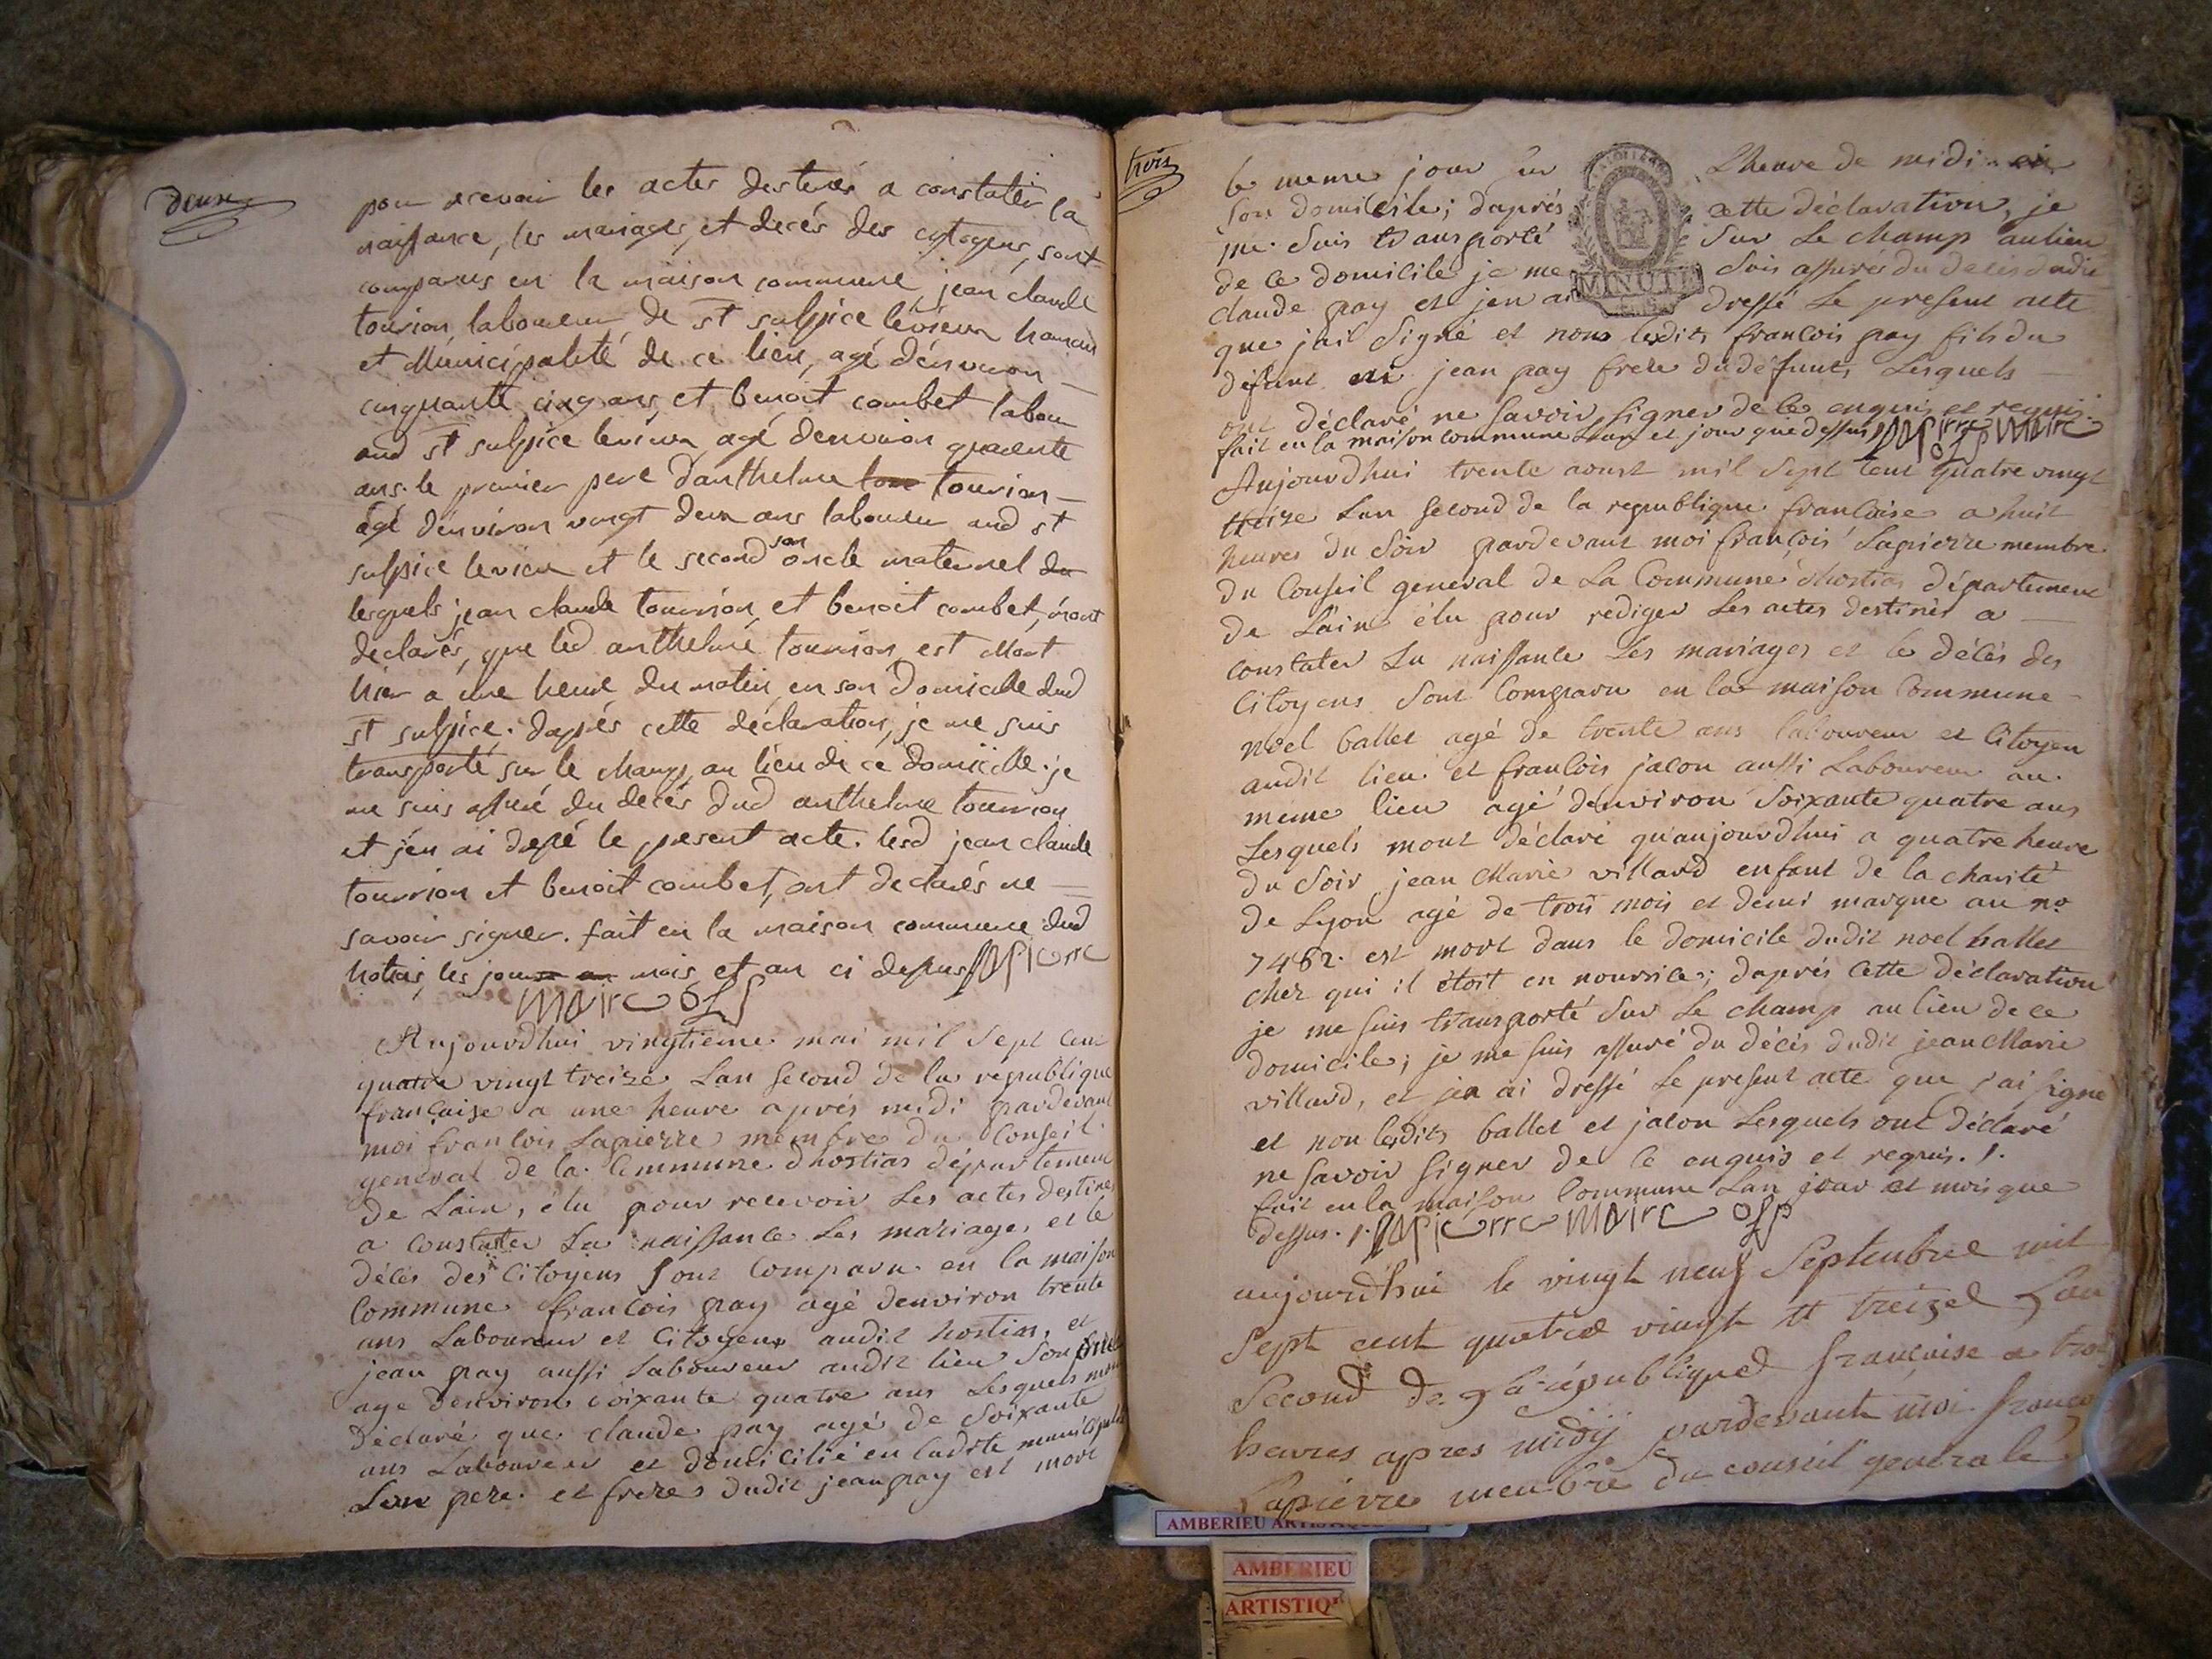 deux
pour recevoir les actes destinés a constater la
naissance, les mariages, et decés des cytoyens, sont
comparus en la maison commune jean claude
tourion laboureur, de st sulpice levieux hameau
et Municipalité de ce lieu, agé d'environ
cinquante cinq ans, et benoit combet labou
aud st sulpice levieux agé denviron quarente
ans. le premier pere d'anthelme tourion
agé d'environ vingt deux ans laboureur aud st
sulpice levieux et le second son oncle maternel
lesquels jean claude tourrion, et benoit combet, m'ont
declarés, que led anthelme tourrion est Mort
hier a une heure du matin, en son domicille dud
st sulpice. d'après cette déclaration, je me suis
transporté sur le champ, au lieu de ce domicille. je
me suis assuré du decés dud anthelme tourrion
et j'en ai dressé le present acte. lesd jean claude
tourrion et benoit combet, ont declarés ne
savoir signer. fait en la maison commune dud
hotias, les jour mois et an ci dessus Lapierre
maire
Aujourdhui vingtieme mai mil Sept cent
quatre vingt treize Lan Second de la republique
française a une heure après midi pardevant
moi francois Lapierre membre du Conseil
general de la Commune dhostias département
de Lain, élu pour recevoir Les actes destinés
a constater La naissance Les mariages et le
décès des Citoyens Sont Comparu en la maison
Commune francois pay agé denviron trente
ans Laboureur et Citoyens audit hostias, et
jean pay aussi Laboureur audit lieu Son frere
age denviron soixante quatre ans Lesquels mont
Déclaré que claude pay agé de Soixante
ans Laboureur et domicilié en Ladite municipalité
Leur pere. et freres dudit jean pay est mort
trois
le meme jour sur L'heure de midi en
Son domicile; daprès cette déclaration, je
me Suis transporté Sur Le champ au lieu
de ce domicile je me Suis assuré du décès dudit
claude pay et jen ai dressé Le present acte
MINUTE
que jai Signé et non lesdits francois pay fils du
défunt et jean pay frere du défunt, Lesquels
ont déclaré ne Savoir Signer de ce enquis et requis.
fait en la maison commune Lan et jour que dessus Lapierre maire
Aujourdhui trente aoust mil Sept Cent quatre vingt
treize Lan Second de la republique francoise a huit
heures du Soir pardevant moi françois Lapierre membre
du Conseil general de La Commune dhostias département
de Lain élu pour rediger Les actes destinés a
constater La naissance Les mariages et le décès des
Citoyens Sont Comparu en la maison Commune
noel ballet agé de trente ans laboureur et Citoyen
audit lieu et francois jacon aussi Laboureur au
meme lieu agé denviron Soixante quatre ans
Lesquels mont déclaré qu'aujourdhui a quatre heure
du Soir jean Marie villard enfant de la charité
de Lyon agé de trois mois et demi marque au no
7462. est mort dans le domicile dudit noel ballet
chez qui il étoit en nourrice; daprès Cette déclaration
je me Suis transporté Sur Le champ au lieu de ce
domicile; je me Suis assuré du décès dudit jean Marie
villard, et jen ai dressé Le present acte que j'ai Signé
et non lesdits ballet et jacon Lesquels ont déclaré
ne Savoir Signer de Ce enquis et requis. /.
fait en la maison Commune Lan jour et mois que
dessus. /. Lapierre maire
aujourd'hui le vingt neuf Septembre mil
Sept cent quatre vingt et treize L'an
Second de La république françoise a trois
heures apres midy pardevant moi francois
Lapierre membre du conseil generale
AMBERIEU
AMBERIEU
ARTISTIQ